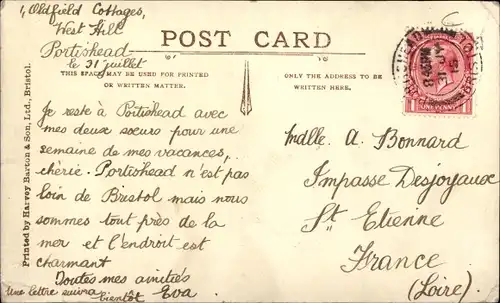 1, Oldfield Cottages,
West Hill
Portishead
le 31 juillet
POST CARD
THIS SPACE MAY BE USED FOR PRINTED
OR WRITTEN MATTER.
ONLY THE ADDRESS TO BE
WRITTEN HERE.
Je reste à Portishead avec
mes deux sœurs pour une
semaine de mes vacances,
chérie. Portishead n'est pas
loin de Bristol mais nous
sommes tout près de la
mer et l'endroit est
charmant
Toutes mes amitiés
Une lettre suivra
bientôt Eva
Mdlle A. Bonnard
Impasse Desjoyaux
St Etienne
France
(Loire)
Printed by Harvey Barton & Son, Ltd., Bristol.
ONE PENNY